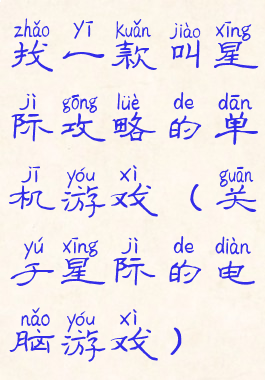 zhǎo yī kuǎn jiào xīng
找一款叫星
jì gōng lüè de dān
际攻略的单
jī yóu xì guān
机游戏（关
yú xīng jì de diàn
于星际的电
nǎo yóu xì
脑游戏）